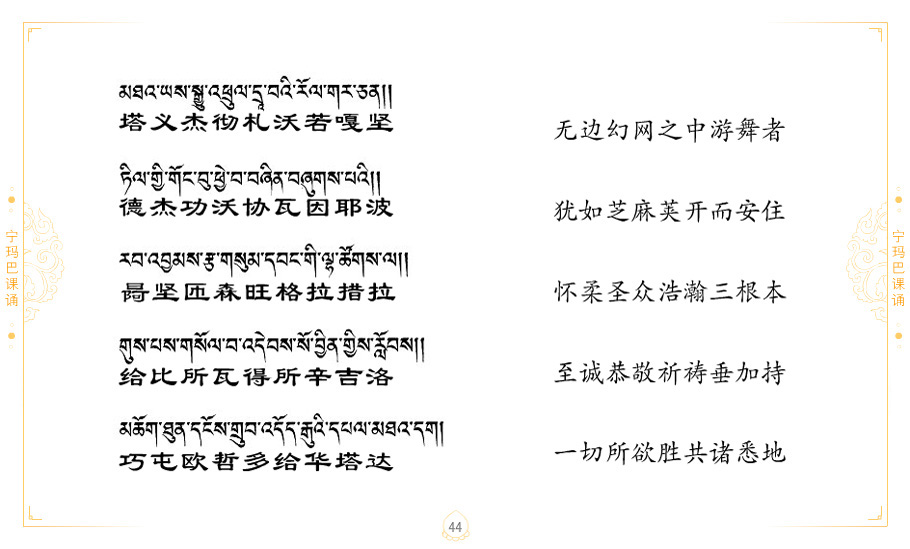 མཐའ་ཡས་སྒྱུ་འཕྲུལ་དྲྭ་བའི་རོལ་གར་ཅན།།
塔义杰彻札沃若嘎坚
无边幻网之中游舞者
ཏིལ་གྱི་གོང་བུ་ཕྱེ་བ་བཞིན་བཞུགས་པའི།།
德杰功沃协瓦因耶波
犹如芝麻荚开而安住
རབ་འབྱམས་རྩ་གསུམ་དབང་གི་ལྷ་ཚོགས་ལ།།
坚匝森旺格拉措拉
怀柔圣众浩瀚三根本
གུས་པས་གསོལ་བ་འདེབས་སོ་བྱིན་གྱིས་རློབས།།
给比所瓦得所辛吉洛
至诚恭敬祈祷垂加持
མཆོག་ཐུན་དངོས་གྲུབ་འདོད་རྒུའི་དཔལ་མཐའ་དག།
巧屯欧哲多给华塔达
一切所欲胜共诸悉地
宁玛巴课诵
宁玛巴课诵
44